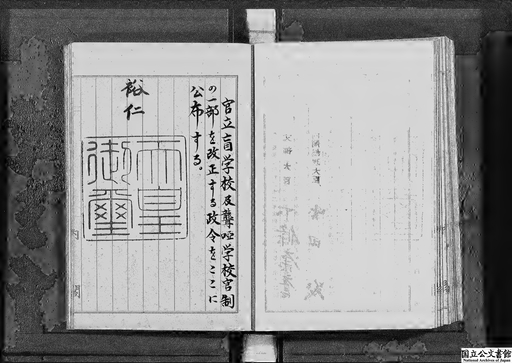 官立盲学校及聾唖学校官制
の一部を改正する政令をここに
公布する。
裕仁
天皇
御璽
内閣
国立公文書館
National Archives of Japan